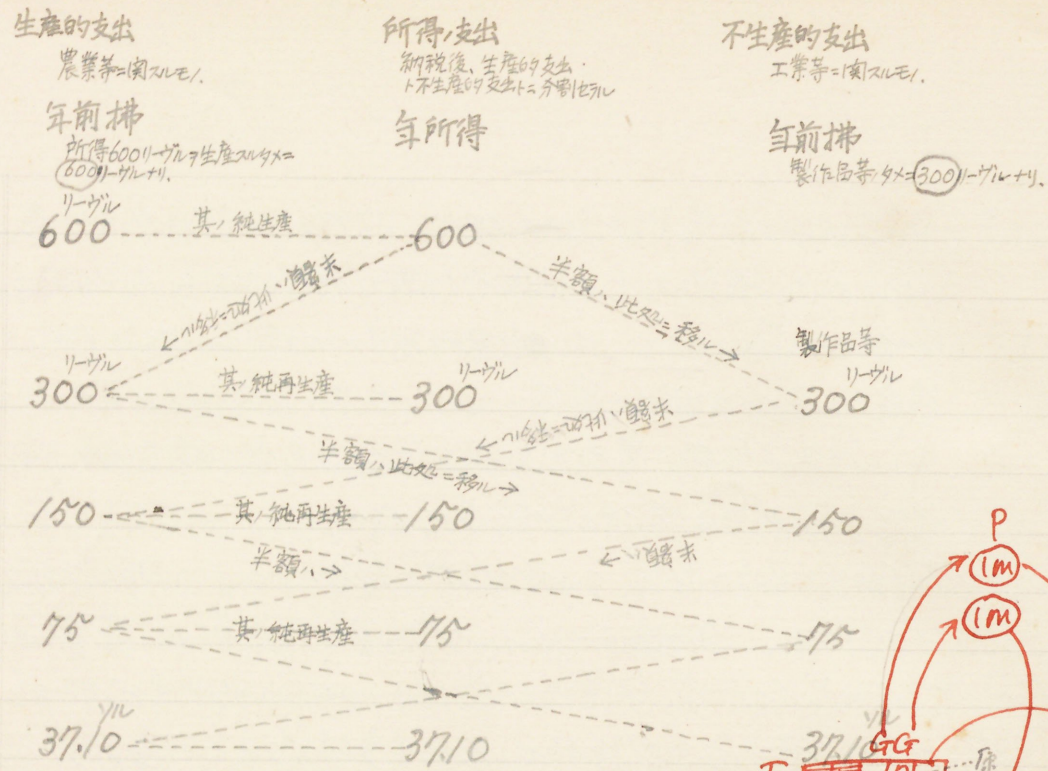 生産的支出
農業等ニ関スルモノ.
年前拂
所得600リーヴルヲ生産スルタメニ
600リーヴルナリ.
所得ノ支出
納税後、生産的支出・
ト不生産的支出トニ分割セラル
年所得
不生産的支出
工業等ニ関スルモノ.
年前拂
製作品等ノタメニ300リーヴルナリ.
リーヴル
600 其ノ純生産 600
半額ハ此処ニ移ル
半額ハ此処ニ移ル
製作品等
リーヴル リーヴル リーヴル
300 其ノ純再生産 300 300
半額ハ此処ニ移ル
半額ハ此処ニ移ル
150 其ノ純再生産 150 150
半額ハ
半額ハ
75 其ノ純再生産 75 75
ソル ソル
37.10 37.10 37.10
P
1m
1m
GG